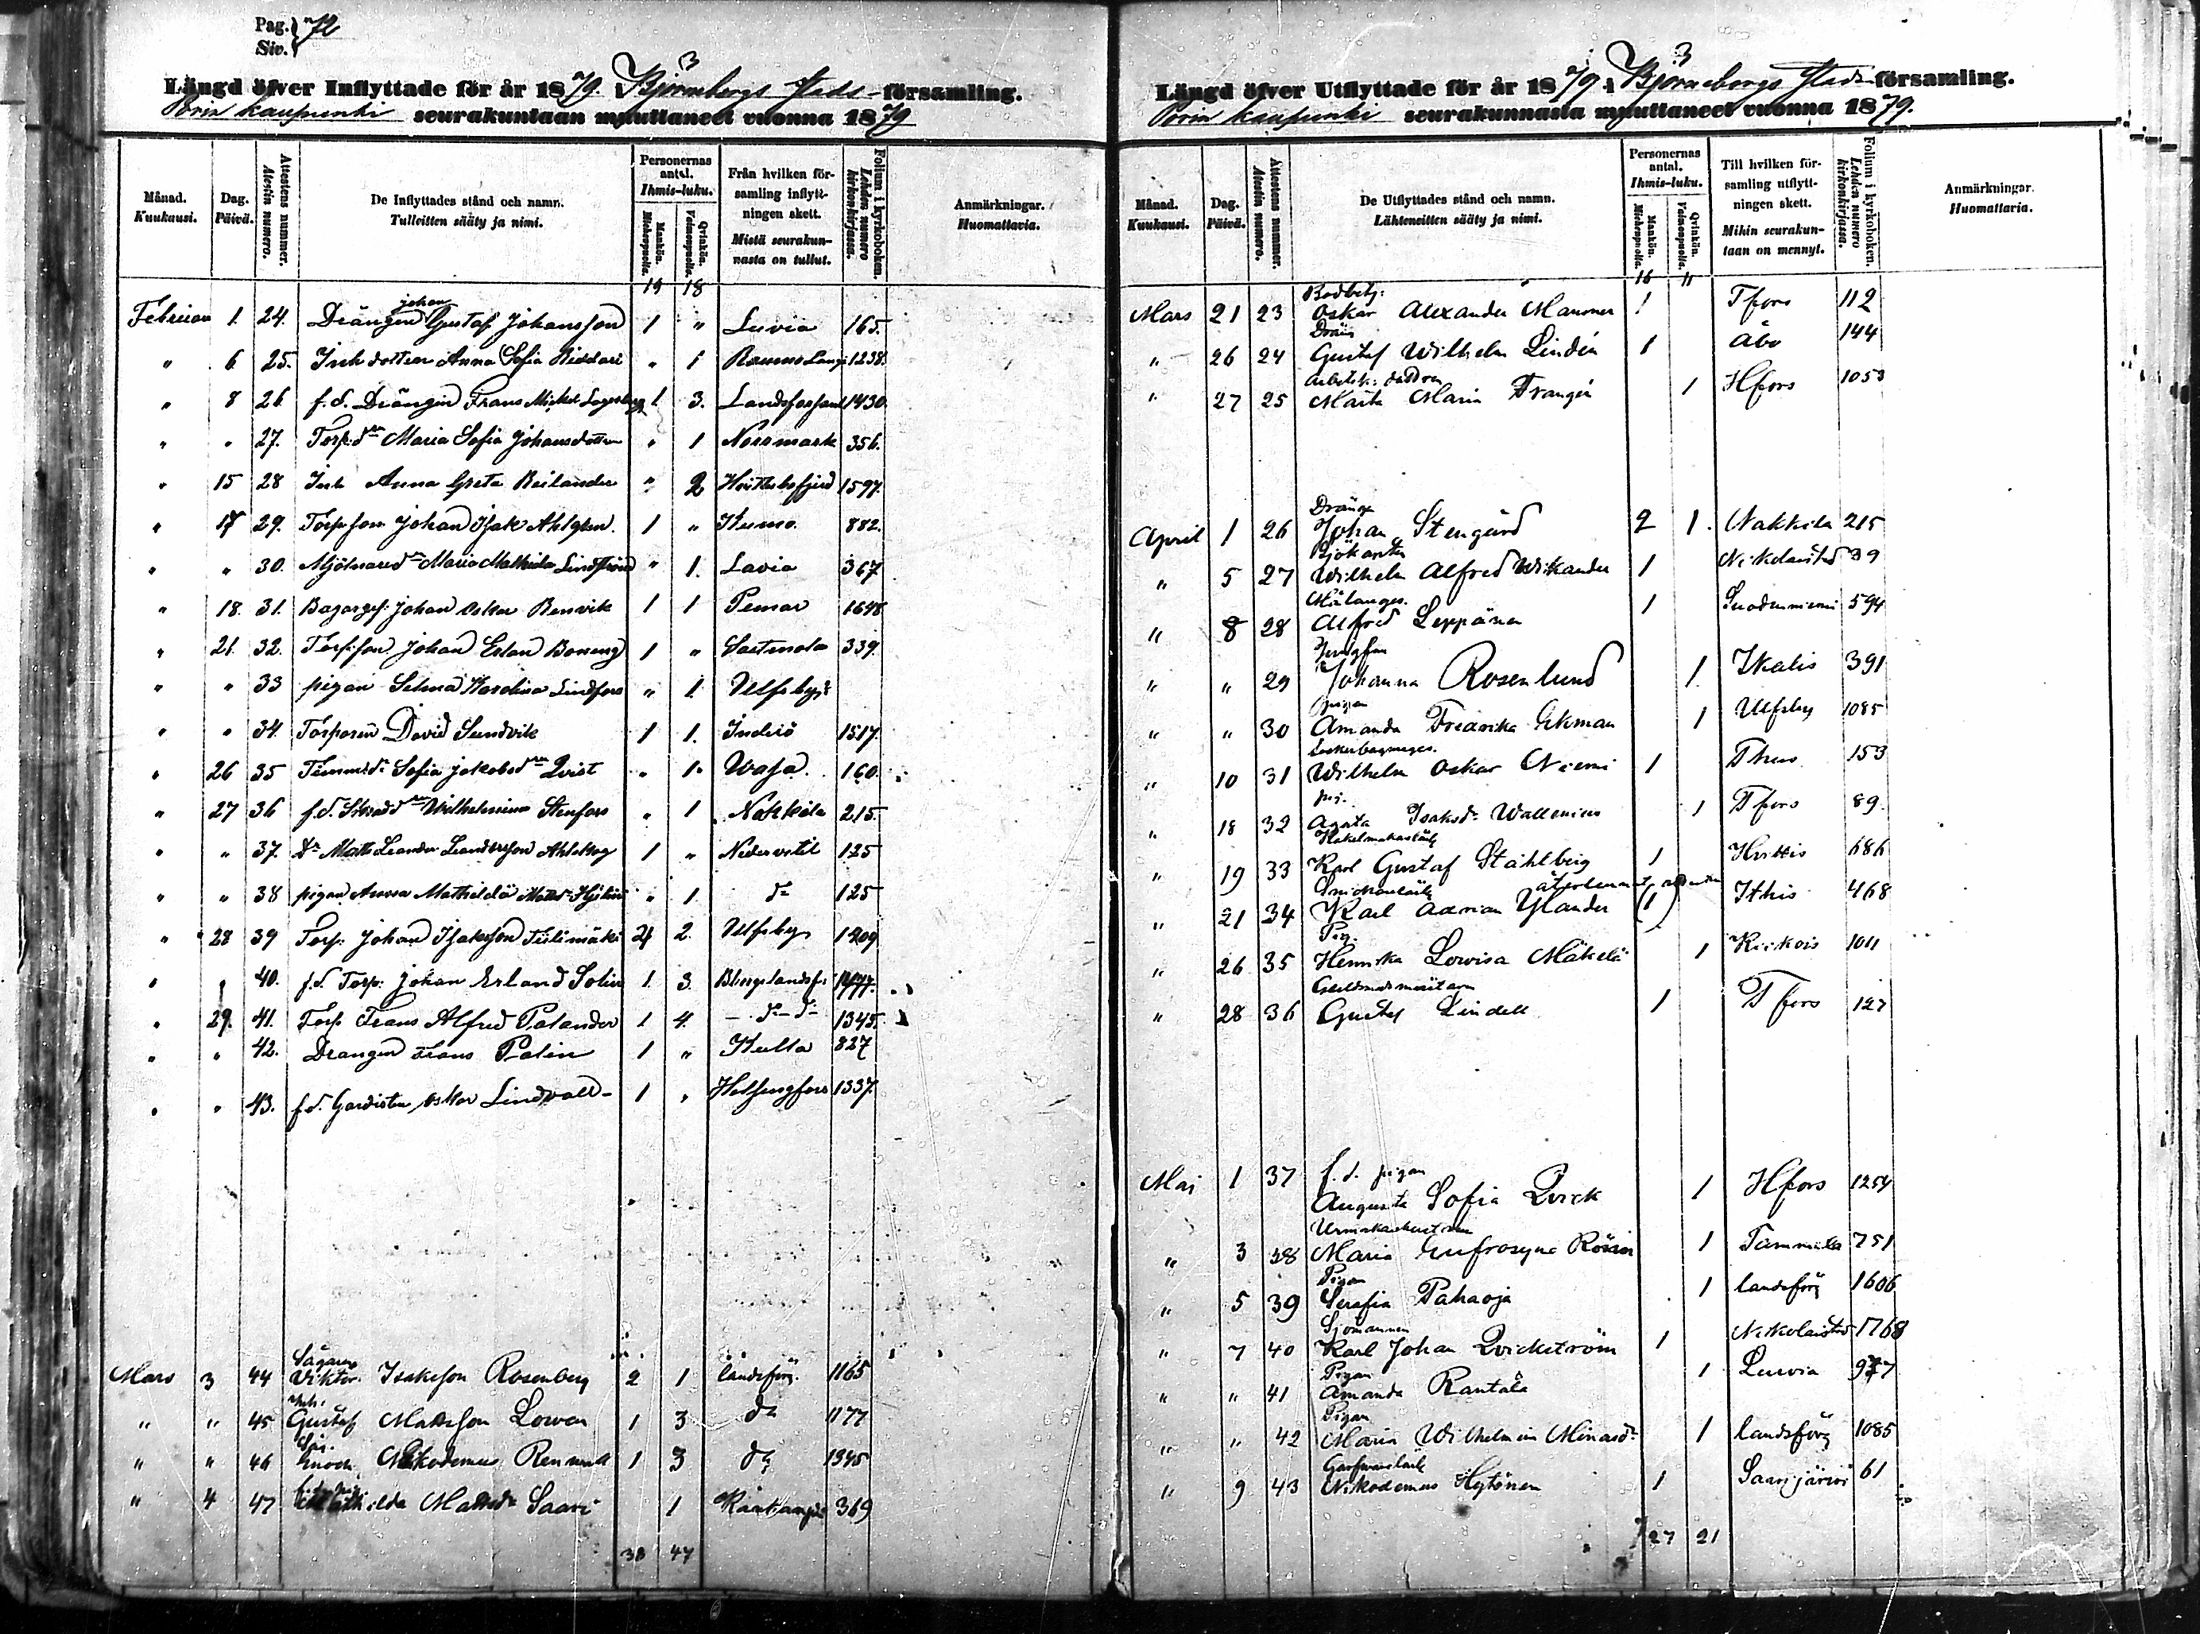 Pag. 72
Siv.
3
Längd öfver Inflyttade för år 1879 i Björneborgs stads församling.
Porin kaupunki seurakuntaan muuttaneet vuonna 1879
Månad. Kuukausi.
Dag. Päivä.
Attestens nummer. Atestin numero.
De Inflyttades stånd och namn. Tulleitten sääty ja nimi.
Personernas antal. Ihmis-luku.
Mankön. Miehenpuolta.
Qvinkön. Vaimonpuolta.
Från hvilken församling inflyttningen skett. Mistä seurakunnasta on tullut.
Folium i kyrkoboken. Lehden numero kirkonkirjassa.
Anmärkningar. Huomattavia.
19 18
Februari 1. 24. Drängen Johan Gustaf Johansson 1 " Luvia 165.
" 6 25. Inh dotter Anna Sofia Riddari " 1 1238.
" 8 26 f.d. Drängen Frans Michel 1 3. Landsförsaml 1430.
" " 27. Torp.dn Maria Sofia Johansdotter " 1 Norrmark 356.
" 15 28 Inh Anna Greta Reilander " 2 1597.
" 17 29. Torp.son Johan Isak Ahlgren. 1 " Kumo. 882.
" " 30. Mjölnared. Maria Mathilda Lindström " 1. Lavia 367
" 18. 31. Bagarges. Johan Oskar Renvik 1 1 Pemar 1648
" 21. 32. Torp.son Johan Erland 1 " Sastmola 339.
" " 33 pigan Selma Karolina Lindfors " 1 Ulfsby
" " 34. Torparen David Sundvik 1 1. Inderö 1517.
" 26 35 Sofia Jakobsdr Qvist " 1. Wasa. 160.
" 27 36 f.d. Wilhelmina Stenfors " 1 Nakkila 215.
" " 37. Dr. Matts Leander Leandersson Ahlskog 1 " Nedervetil 125
" " 38 pigan Anna Mathilda Matsdr " 1. do 125
" 28 39 Torp. Johan Isaksson Tiilimäki 4 2. Ulfsby 1209
" " 40. f.d. Torp. Johan Erland Solin 1. 3. 1477.
" 29. 41. Torp Frans Alfred Palander 1 4. - do - do 1345.
" " 42. Drängen Frans Palin 1 " Kulla 827
" " 43. f.d. Gardisten Oskar Lindvall 1 " Helsingfors 1337.
Sågaren
Mars 3 44 Viktor Isaksson Rosenberg 2 1 landsförs. 1165
Inh.
" " 45 Gustaf Mattsson Lowen 1 3 do 1177
" " 46 Enoch Nikodemus 1 3 do 1345
" 4 47 Mathilda Matsdr Saari 1 369
38 47
3
Längd öfver Utflyttade för år 1879 i Björneborgs stads församling.
Porin kaupunki seurakunnasta muuttaneet vuonna 1879.
Månad. Kuukausi.
Dag. Päivä.
Attestens nummer. Atestin numero.
De Utflyttades stånd och namn. Lähteneitten sääty ja nimi.
Personernas antal. Ihmis-luku.
Mankön. Miehenpuolta.
Qvinkön. Vaimonpuolta.
Till hvilken församling utflyttningen skett. Mihin seurakuntaan on mennyt.
Folium i kyrkoboken. Lehden numero kirkonkirjassa.
Anmärkningar. Huomattavia.
16 11
Mars 21 23 Oskar Alexander 1 Tfors 112
Drän
" 26 24 Gustaf Wilhelm Lindén 1 Åbo 144
" 27 25 Marta Maria Frangén 1 Hfors 1053
Dräng
April 1 26 Johan Stengård 2 1. Nakkila 215
Sjökapten
" 5 27 Wilhelm Alfred Wikander 1 Nikolaistad 39
Målareges.
" 8 28 Alfred Leppänen 1 Suodenniemi 594
Jungfru
" " 29 Johanna Rosenlund 1. Ikalis 391
pigan
" " 30 Amanda Fredrika Ekman 1 Ulfsby 1085
Sockerbagareges.
" 10 31 Wilhelm Oskar Niemi 1 Thus 153
pig.
" 18 32 Agata Isaksdr Wallenius 1 Tfors 89.
" 19 33 Karl Gustaf Ståhlberg 1 Hvittis 686
Snickarelärl återlemnat
" 21 34 Karl Adrian Ylander (1) 468
Pig.
" 26 35 Henrika Lovisa Mäkelä 1 Kiikois 1011
" 28 36 Gustaf Lindell 1 Tfors 127
f. d. pigan
Maj 1 37 Augusta Sofia Qvick 1 Hfors 1254
" 3 38 Maria Eufrosyne 1 Tammela 751
Pigan
" 5 39 Serafia Pahaoja 1 landsförs 1606
Sjömannen
" 7 40 Karl Johan Qvickström 1 Nikolaistad 1768
Pigan
" " 41 Amanda Rantala 1 Luvia 977
Pigan
" " 42 Maria Wilhelmina 1 landsförs 1085
Garfvarelärl
" 9 43 Nikodemus Hytönen 1 Saarijärvi 61
27 21